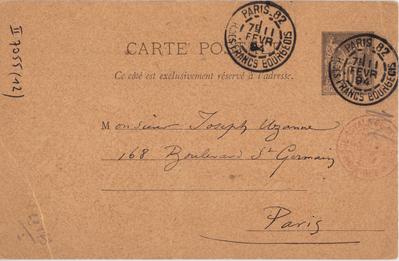 II 7055 (12)
PARIS. 82
7E 11
FEVR
94
R. DES FRANCS BOURGEOIS
PARIS. 82
7E 11
FEVR
94
FRANCS BOURGEOIS
CARTE PO
Ce côté est exclusivement réservé à l'adresse.
Monsieur Joseph Uzanne
168 Boulevard St Germain
Paris